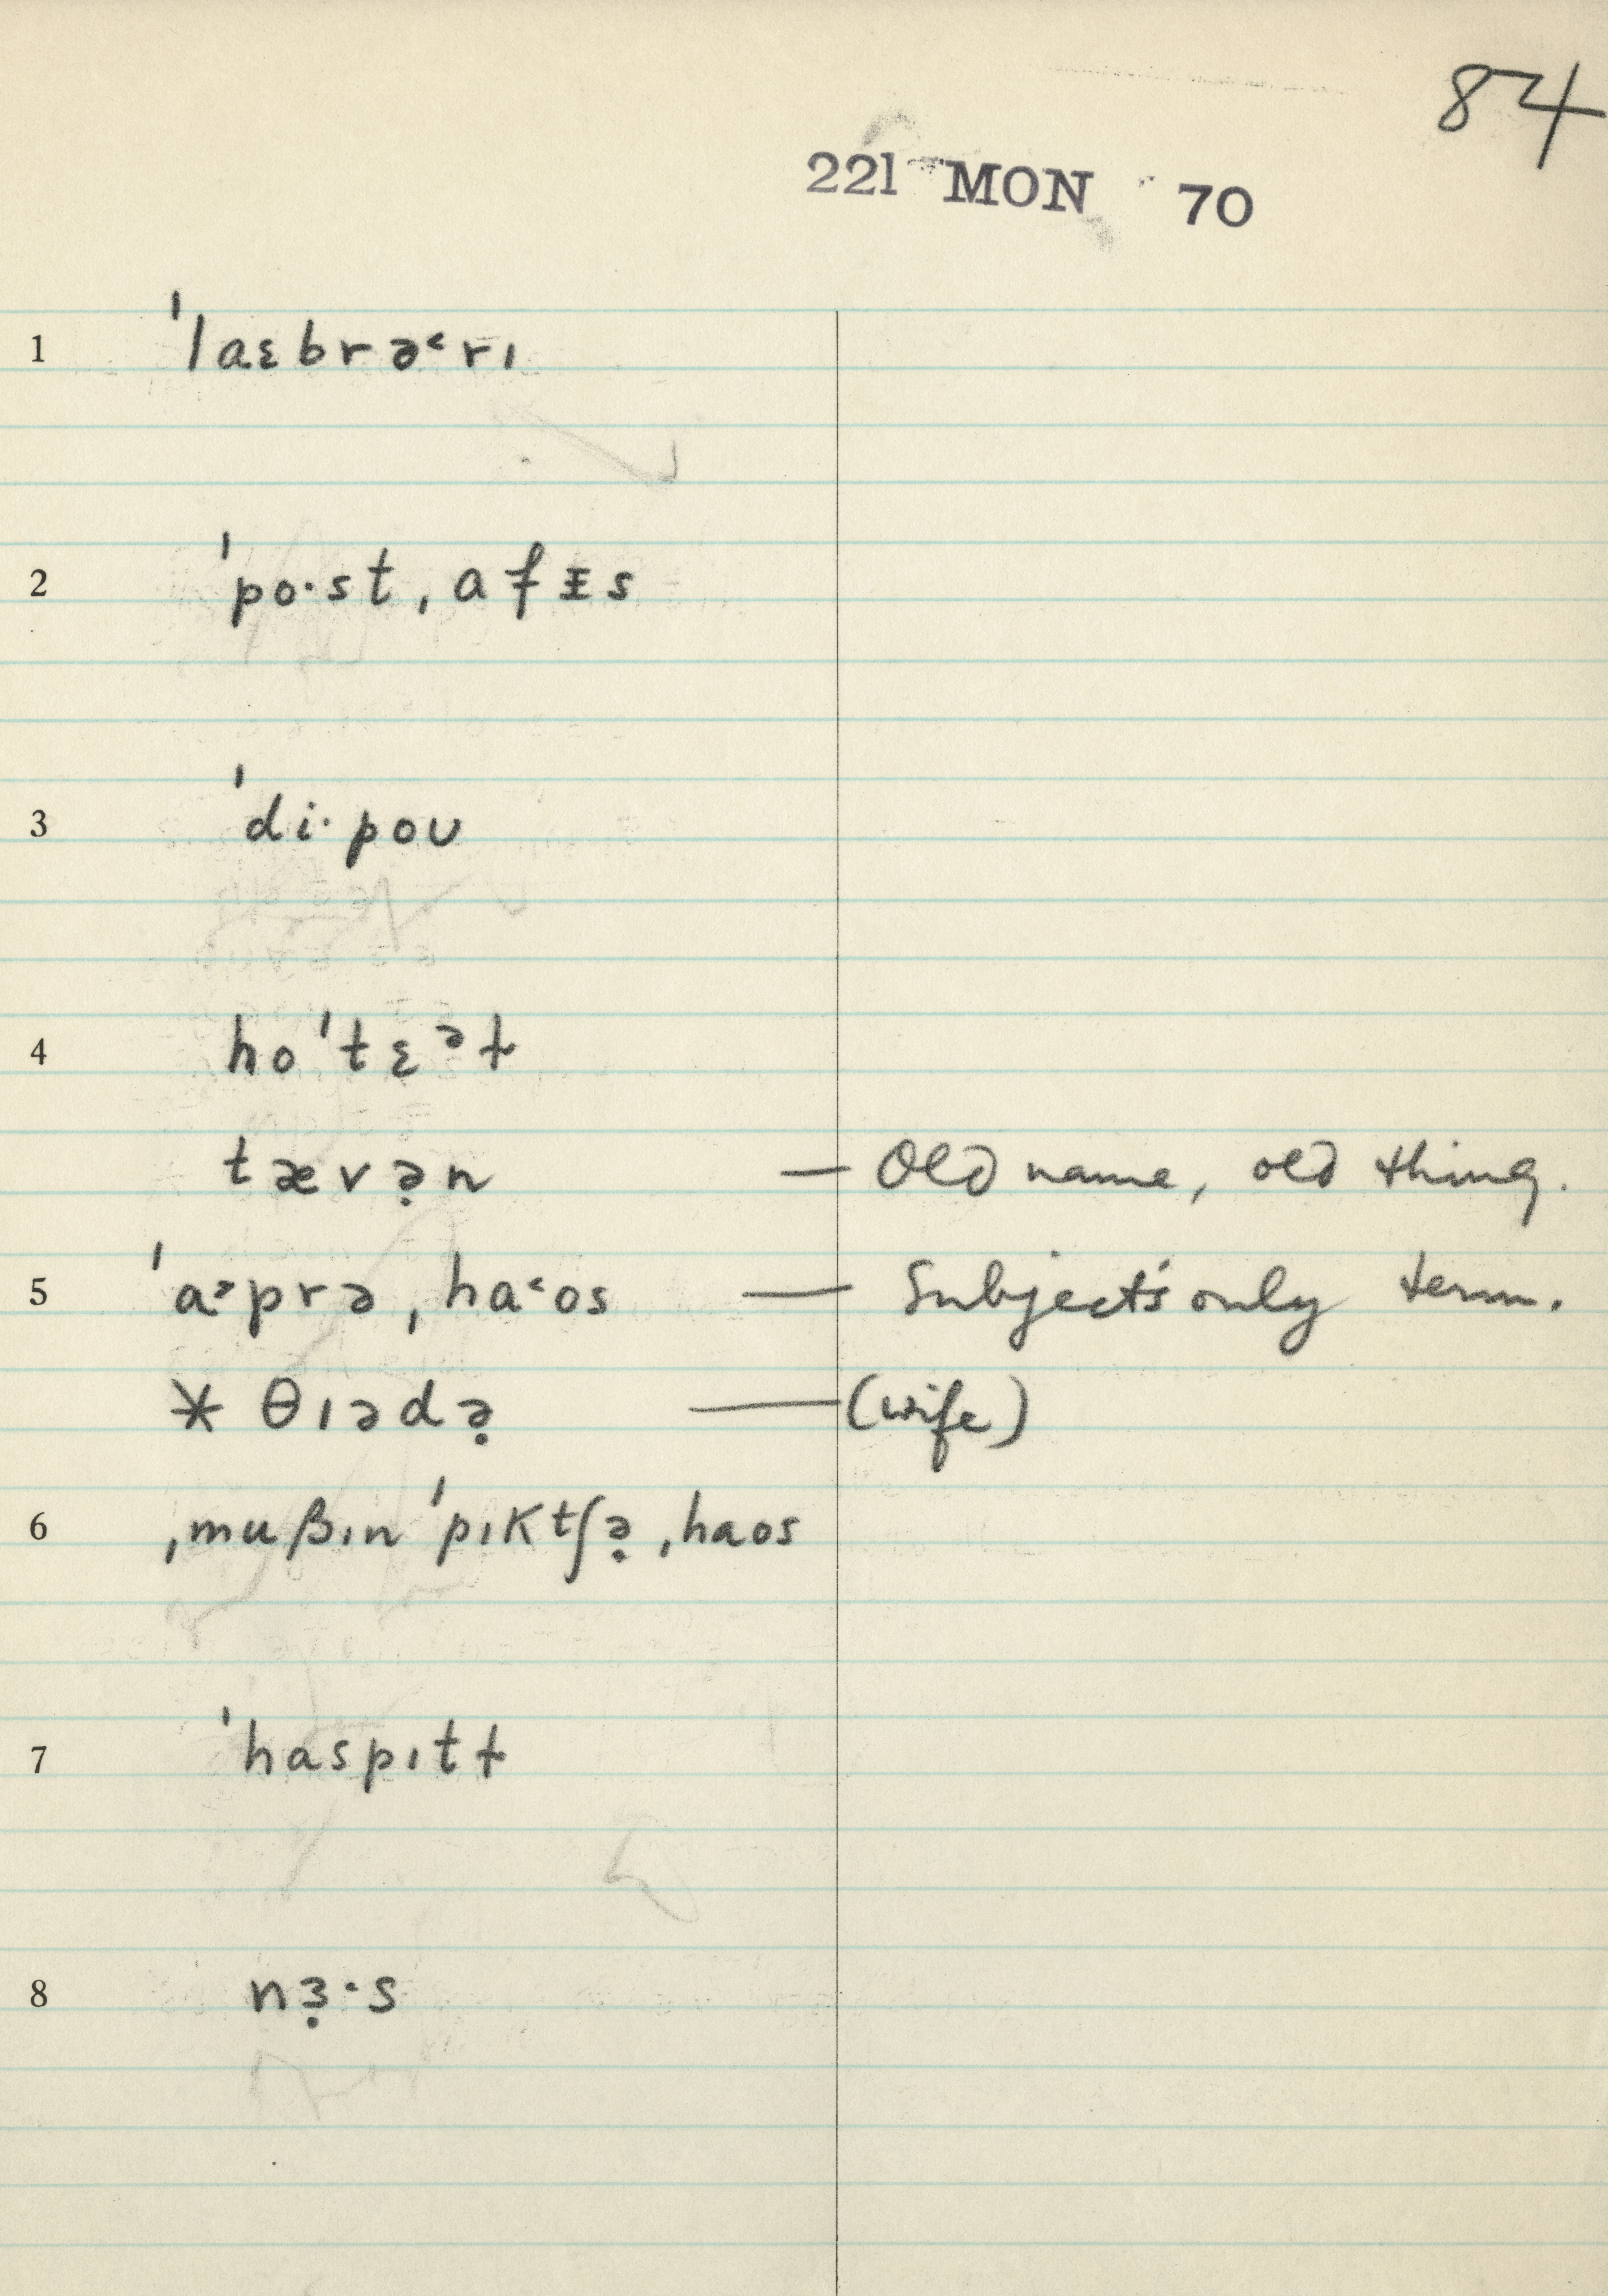 84
221 MON 70
1 ˈlaɛbrə˂rɪ
2 ˈpo·st ˌafᵻs
3 ˈdi·poʊ
4 hoˈtɛᵊɫ
tævə̣n — Old name, old thing.
5 ˈa˃prə ˌha˂os — Subject's only term.
* θɪədə̣ — (wife)
6 ˌmuβɪnˈpɪktʃə̣ ˌhaos
7 ˈhaspɪtɫ
8 nɜ̣·s